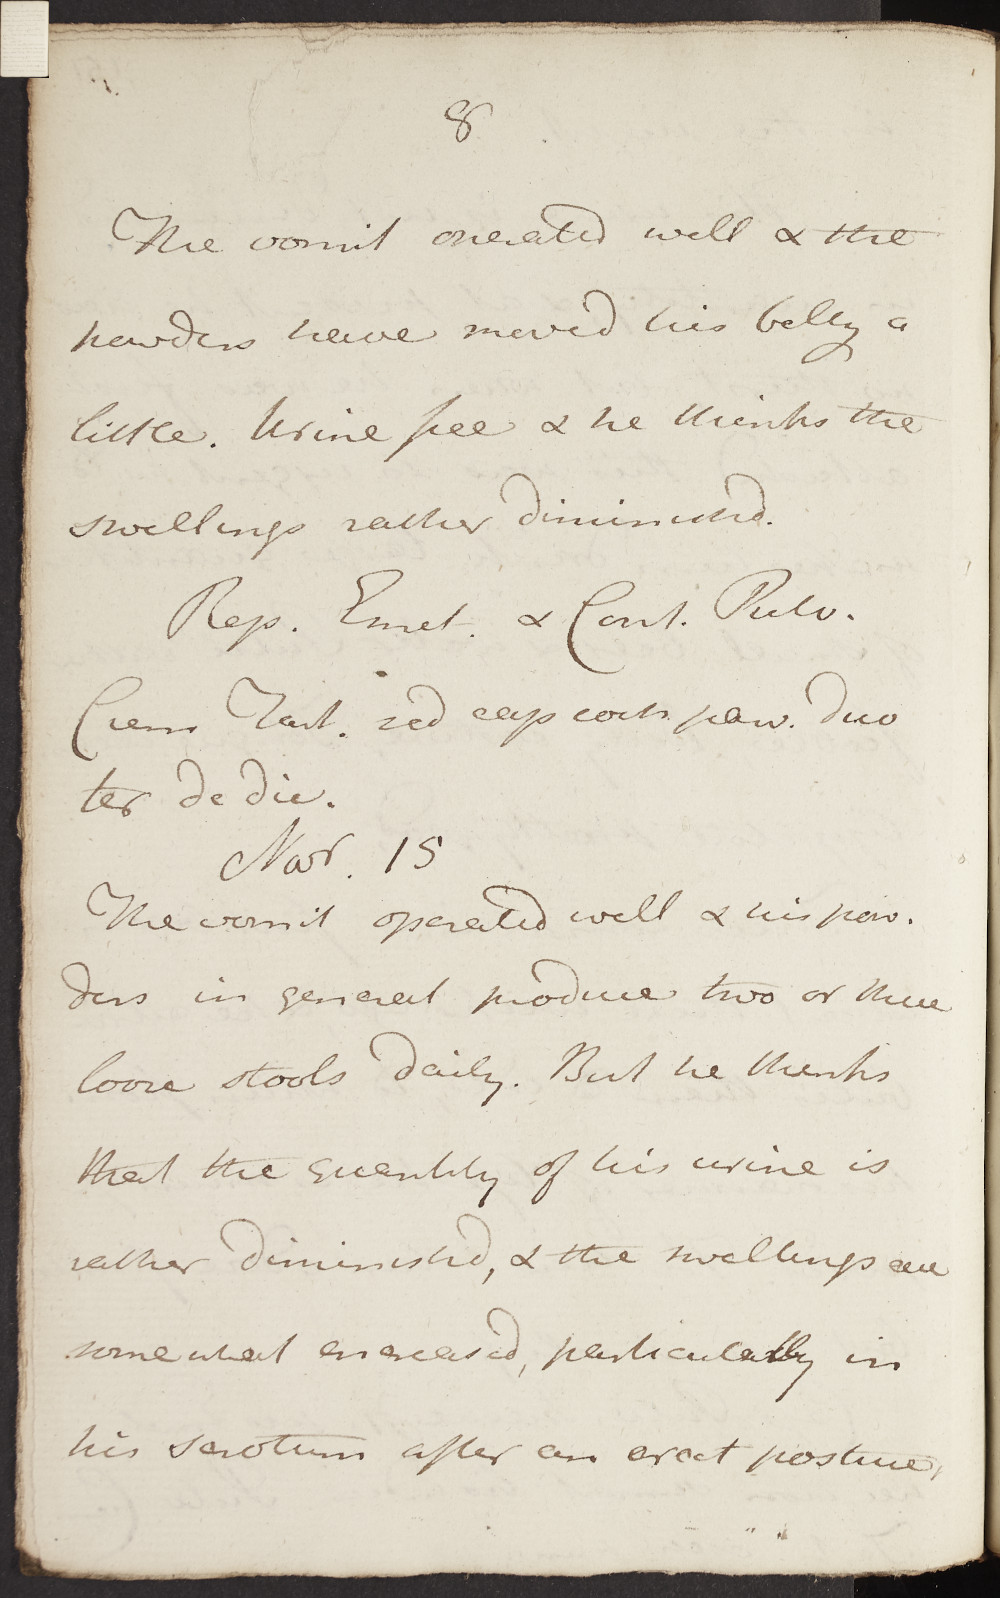 8
The vomit operated well & the
powders have moved his belly a
little. Urine free & he thinks the
swellings rather diminishd.
Rep. Emet. & Cont. Pulv.
Crem Tart. sed cap coch parv. duo
ter de die.
Novr. 15
The vomit operated well & his pow.
ders in general produce two or three
loose stools daily. But he thinks
that the quantity of his urine is
rather diminishd, & the swellings are
somewhat encreased, particularly in
his scrotum after an erect posture,